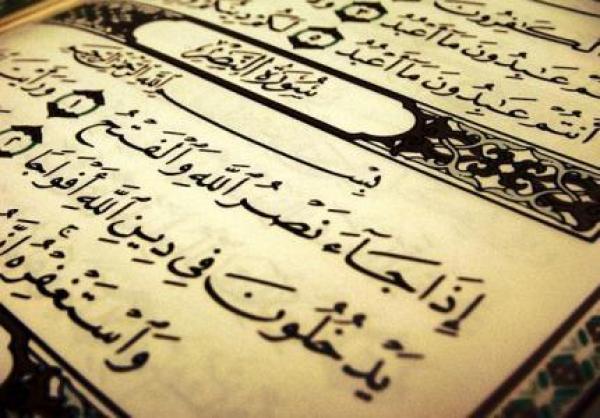 ٱلْكَٰفِرُونَ
تُمْ عَٰبِدُونَ مَآ أَعْبُدُ ٣
أَنتُمْ عَٰبِدُونَ مَآ أَعْبُدُ ٥ لَكُمْ دِينُكُمْ
سُورَةُ النَّصْرِ
بِسْمِ ٱللَّهِ ٱلرَّحْمَٰنِ ٱلرَّحِيمِ
إِذَا جَآءَ نَصْرُ ٱللَّهِ وَٱلْفَتْحُ ١ وَرَأَيْتَ
يَدْخُلُونَ فِي دِينِ ٱللَّهِ أَفْوَاجًا ٢
وَٱسْتَغْفِرْهُ إِنَّهُ